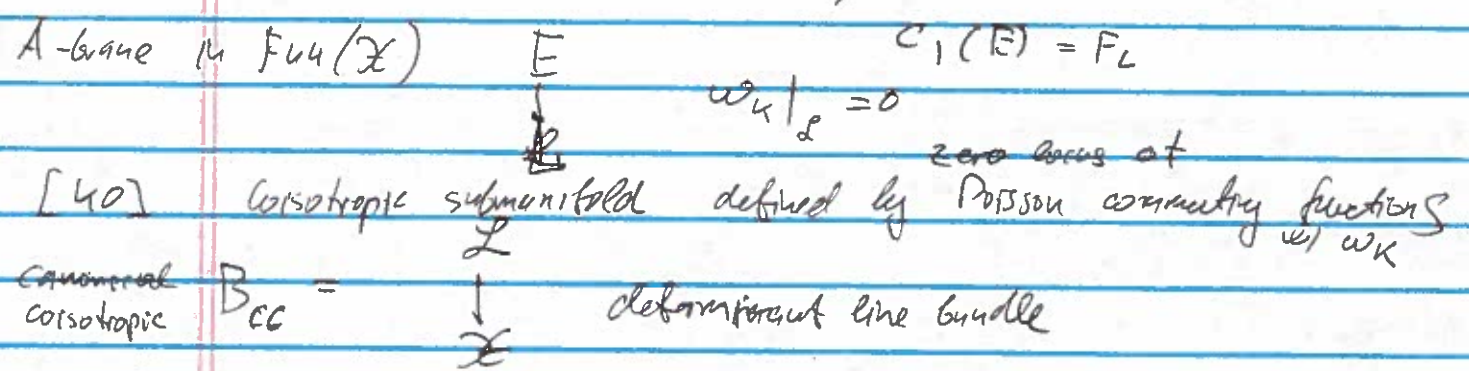 A-brane in Fuk(𝔛) E c₁(E) = F_L
ω_K|_𝓛 = 0
L
zero locus of
[KO] Coisotropic submanifold defined by Poisson commuting functions
w/ ω_K
canonical coisotropic B_cc = 𝓛 ↓ 𝔛 determinant line bundle